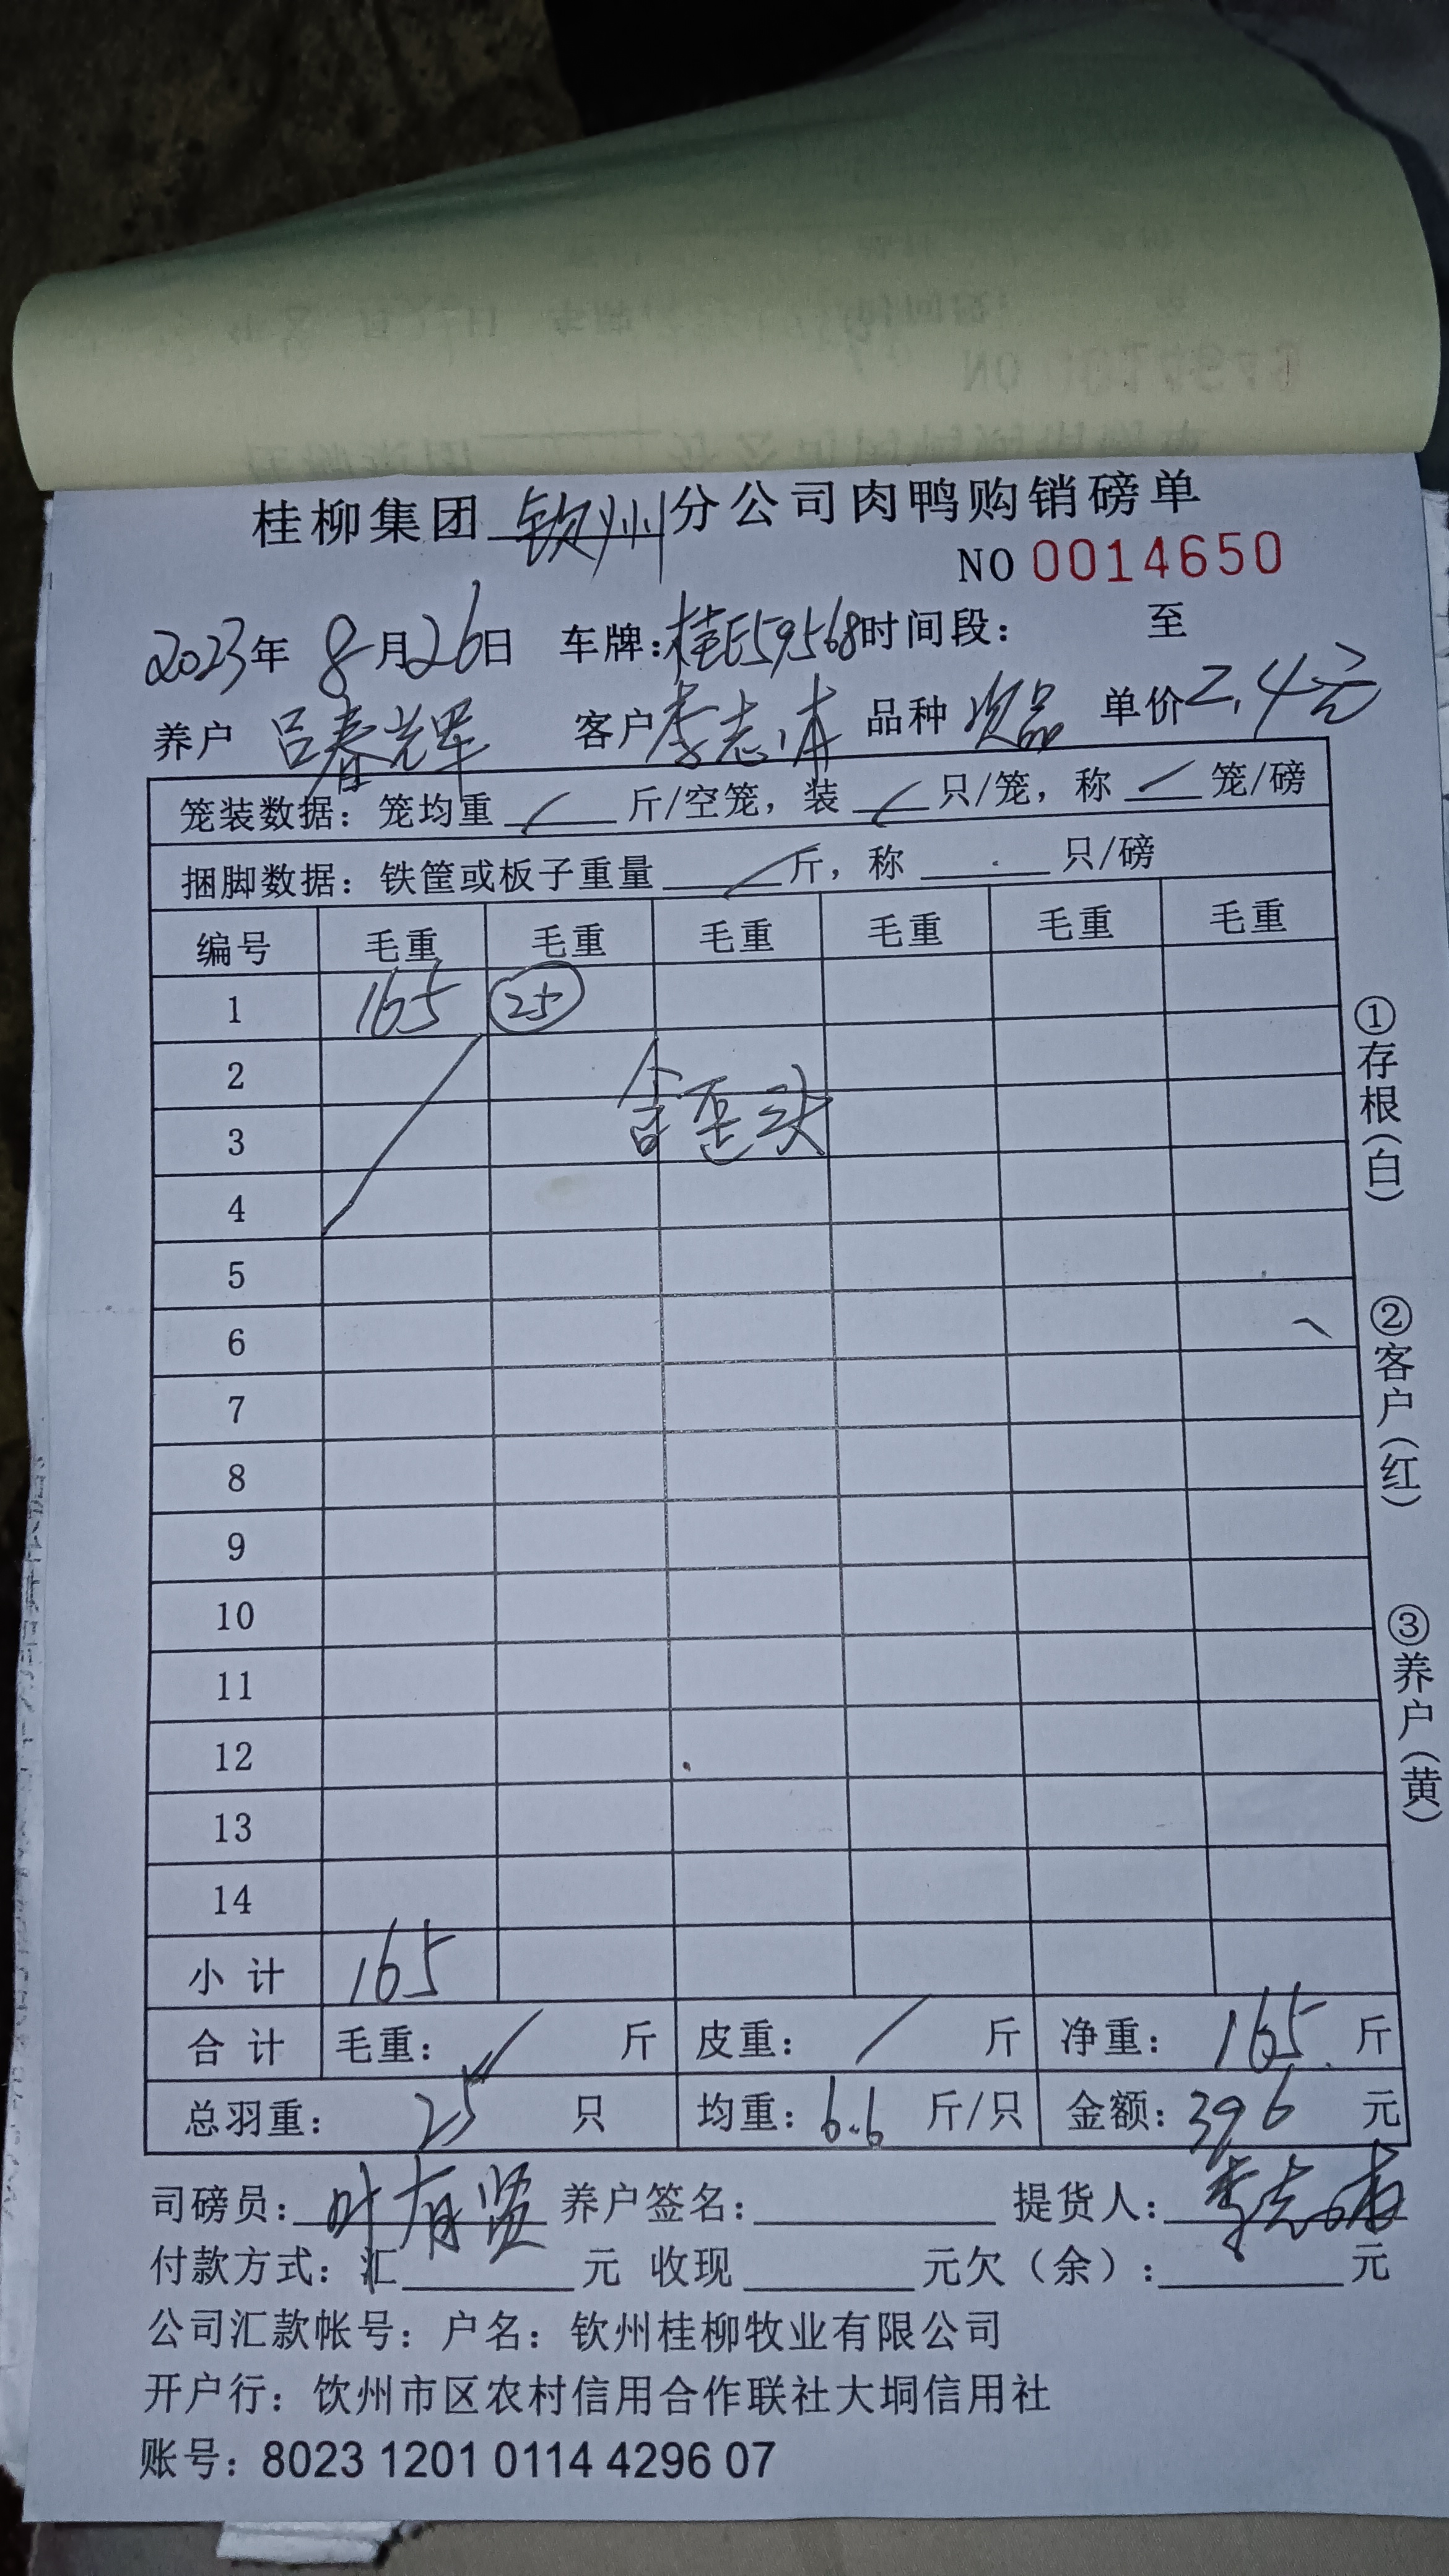 桂柳集团 钦州 分公司肉鸭购销磅单
NO 0014650
2023年 8月26日 车牌:桂E59568时间段: 至
养户 吕春辉 客户 李志 品种 次品 单价 2.4元
笼装数据: 笼均重 / 斤/空笼, 装 / 只/笼, 称 / 笼/磅
捆脚数据: 铁筐或板子重量 / 斤, 称 只/磅
编号 毛重 毛重 毛重 毛重 毛重 毛重
1 165 25
2
含歪头
3
4
5
6
7
8
9
10
11
12
13
14
小计 165
合计 毛重: / 斤 皮重: / 斤 净重: 165 斤
总羽重: 25 只 均重: 6.6 斤/只 金额: 396 元
司磅员: 叶有贤 养户签名: 提货人: 李志
付款方式: 汇 元 收现 元欠(余): 元
公司汇款帐号: 户名: 钦州桂柳牧业有限公司
开户行: 钦州市区农村信用合作联社大垌信用社
账号: 8023 1201 0114 4296 07
①存根(白)
②客户(红)
③养户(黄)